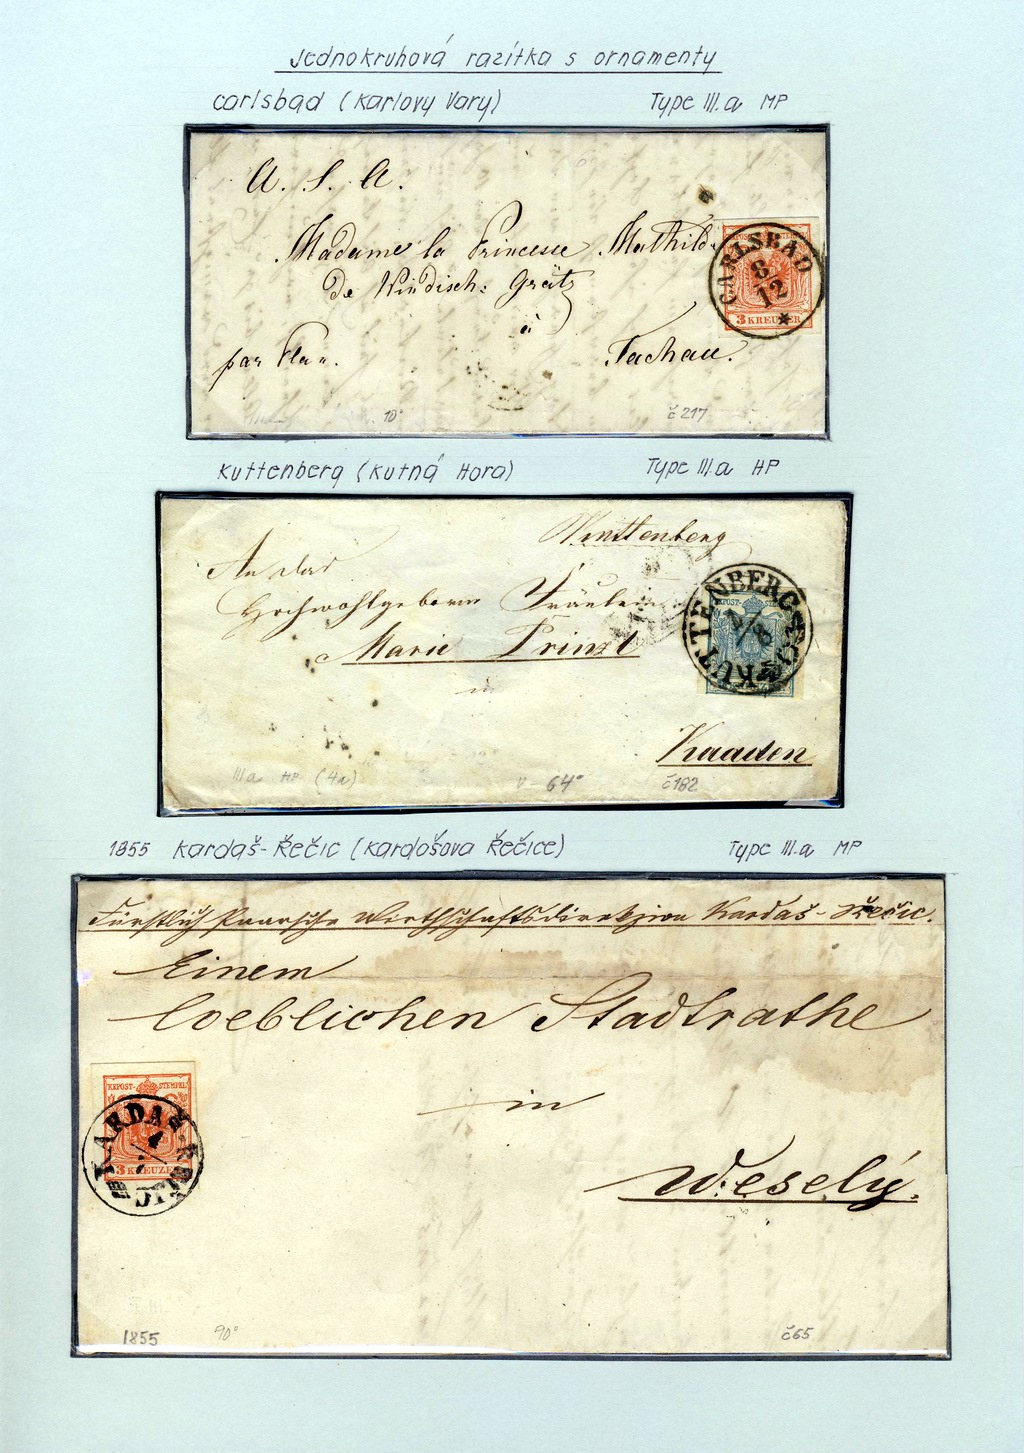 Jednokruhová razítka s ornamenty
Carlsbad (Karlovy Vary) Type III.a MP
A. S. A.
Madame la Princesse Mathild
de Windisch: Grätz
à
par Plan. Tachau.
CARLSBAD
8
12
3 KREUZER
10° č 217
Kuttenberg (Kutná Hora) Type III.a HP
Wuttenberg
An das
Hochwohlgeboren Fräulein
Marie Prinzl
in
Kaaden
KUTTENBERG
III a HP (4a) V - 64° č 182
1855 Kardaš-Řečic (Kardašova Řečice) Type III.a MP
Fürstlich Paarsche Wirthschaftsdirekzion Kardaš-Řečic.
Einem
loeblichen Stadtrathe
in
Weselý.
KKPOST-STEMPEL
3 KREUZER
KARDAŠ-
1855 90° č 65